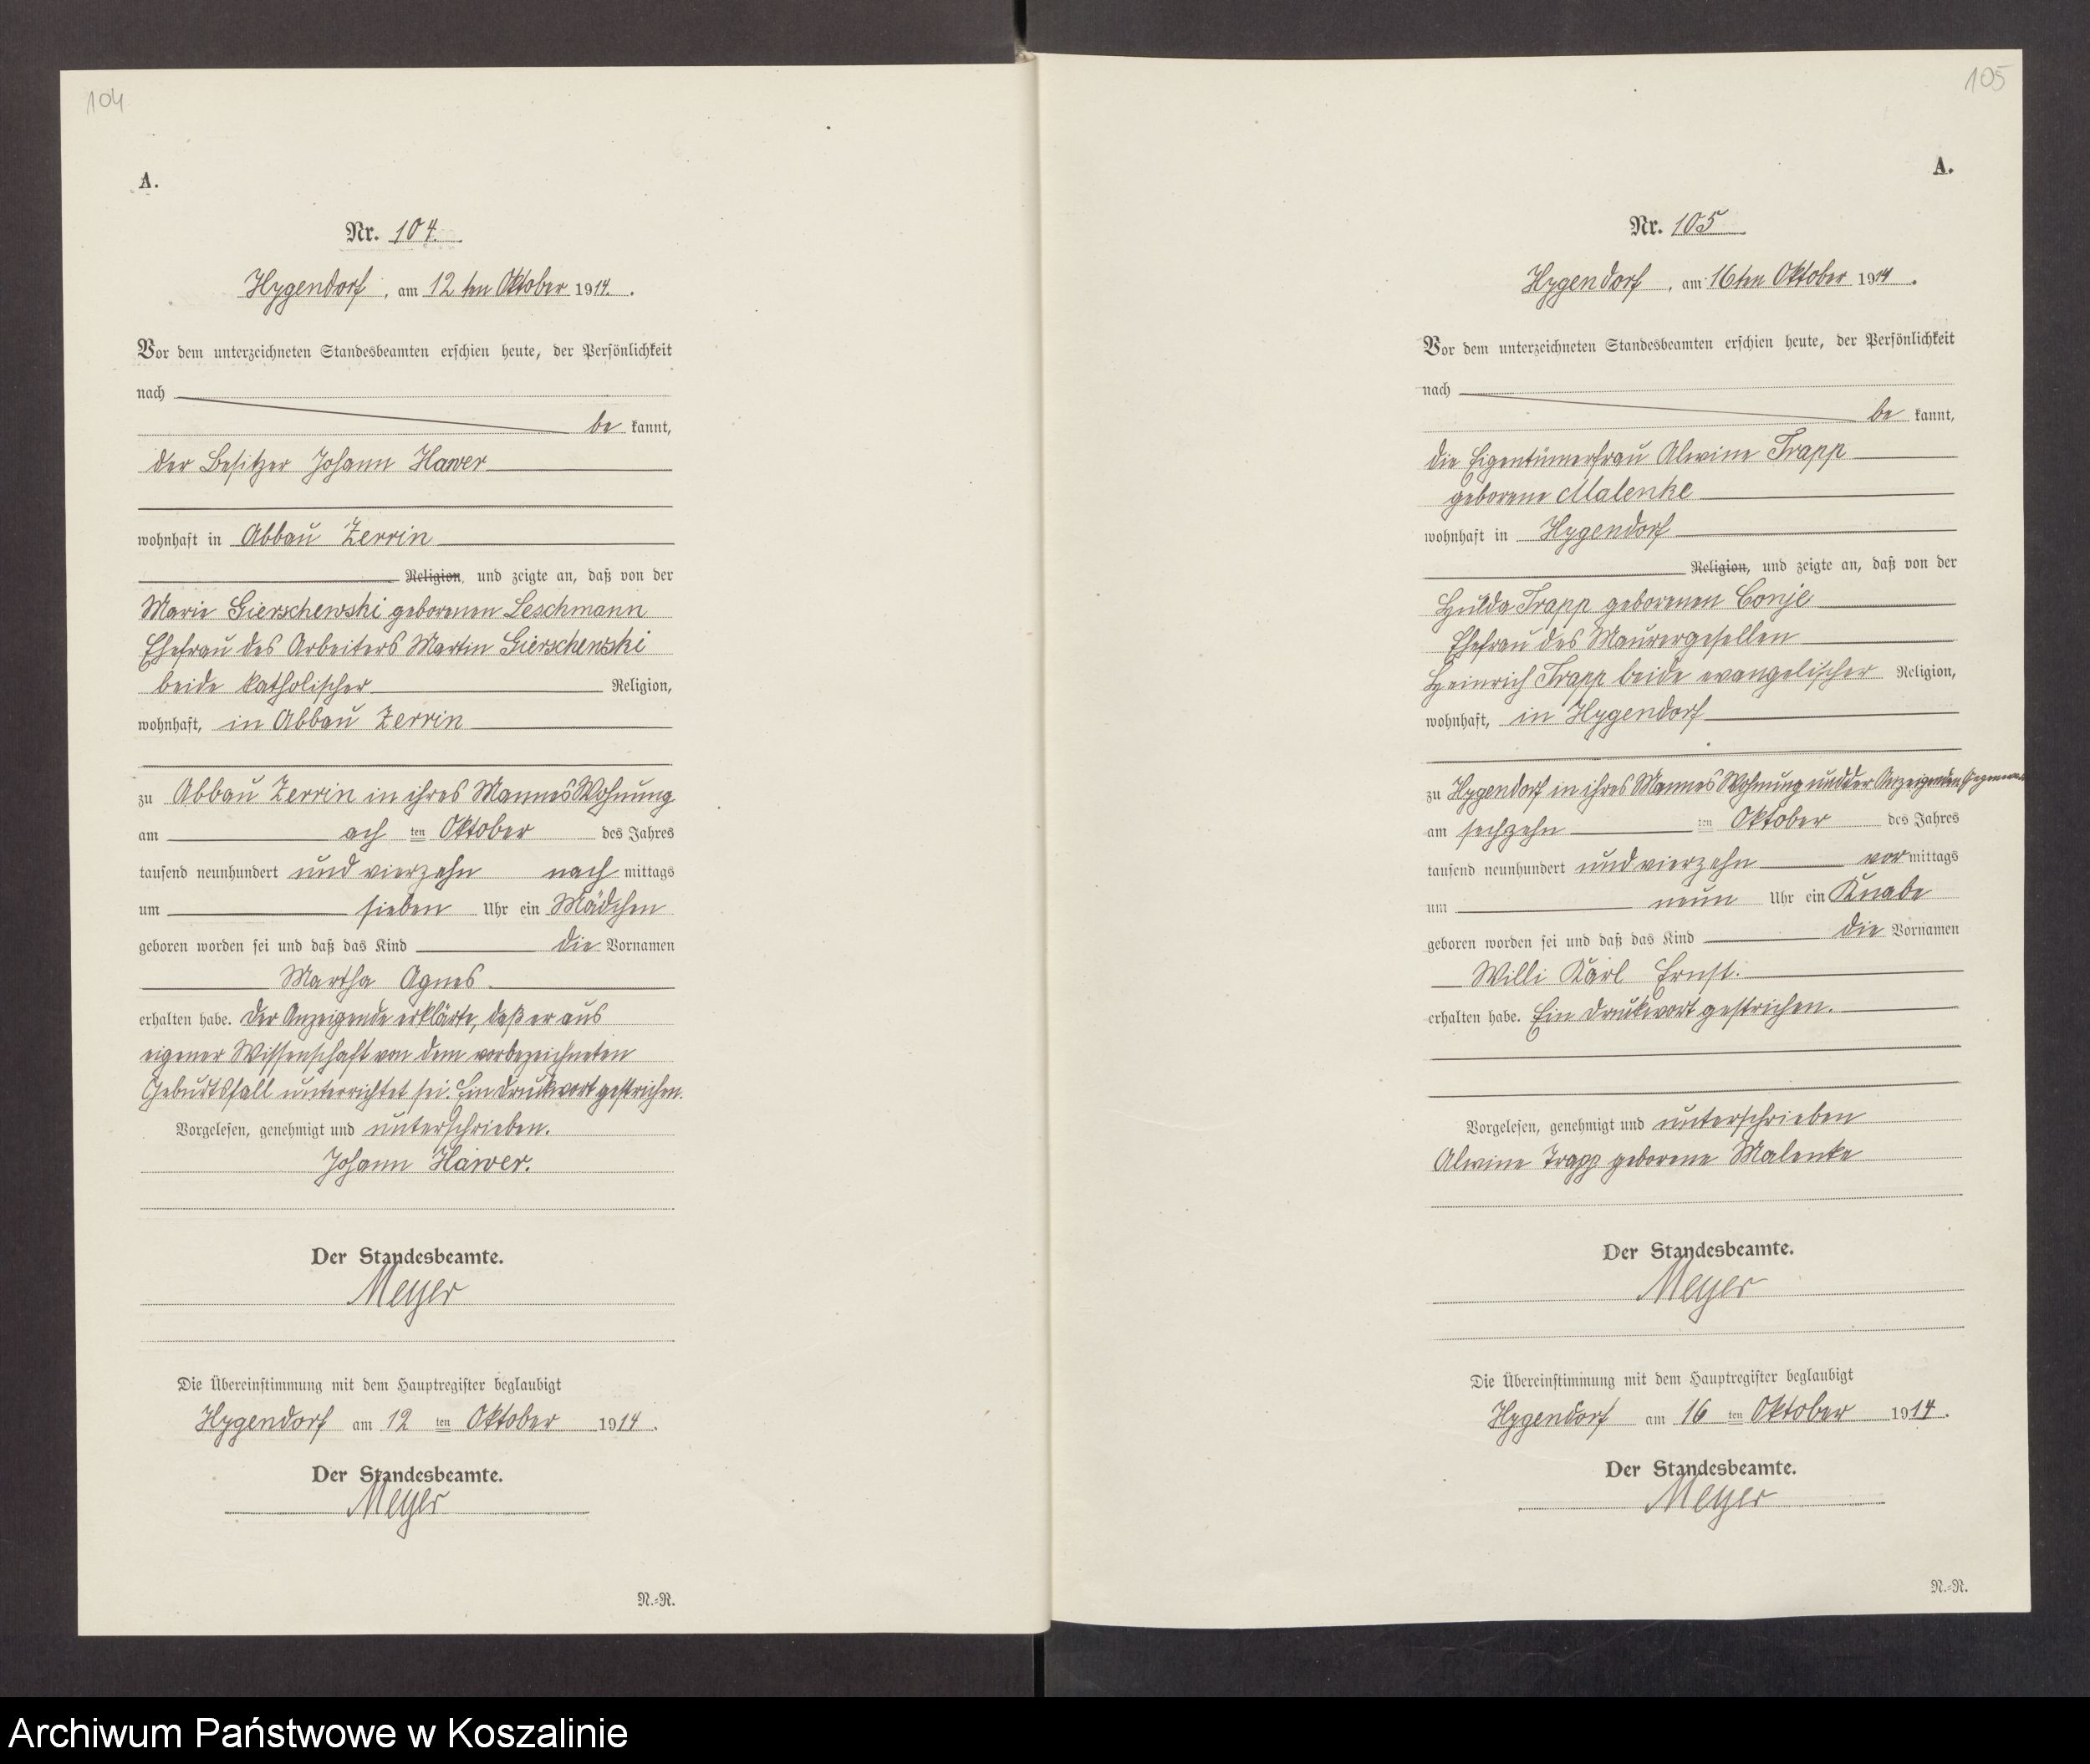 104
A.
Nr. 104.
Hygendorf, am 12 ten Oktober 1914.
Vor dem unterzeichneten Standesbeamten erschien heute, der Persönlichkeit
nach
be kannt,
der Besitzer Johann Hawer
wohnhaft in Abbau Zerrin
Religion, und zeigte an, daß von der
Marie Gierschewski geborenen Leschmann
Ehefrau des Arbeiters Martin Gierschewski
beide katholischer Religion,
wohnhaft, in Abbau Zerrin
zu Abbau Zerrin in ihres Mannes Wohnung
am ach ten Oktober des Jahres
tausend neunhundert und vierzehn nach mittags
um sieben Uhr ein Mädchen
geboren worden sei und daß das Kind die Vornamen
Martha Agnes.
erhalten habe. Der Anzeigende erklärte, daß er aus
eigener Wissenschaft von dem vorbezeichneten
Geburtsfall unterrichtet sei. Ein Druckwort gestrichen.
Vorgelesen, genehmigt und unterschrieben.
Johann Hawer.
Der Standesbeamte.
Meyer
Die Übereinstimmung mit dem Hauptregister beglaubigt
Hygendorf am 12 ten Oktober 1914.
Der Standesbeamte.
Meyer
N.-N.
105
A.
Nr. 105
Hygendorf, am 16ten Oktober 1914.
Vor dem unterzeichneten Standesbeamten erschien heute, der Persönlichkeit
nach
be kannt,
die Eigentümerfrau Alwine Trapp
geborene Malenke
wohnhaft in Hygendorf
Religion, und zeigte an, daß von der
Hulda Trapp geborenen Conje
Ehefrau des Maurergesellen
Heinrich Trapp beide evangelischer Religion,
wohnhaft, in Hygendorf
zu Hygendorf in ihres Mannes Wohnung und der Anzeigenden
am sechzehn ten Oktober des Jahres
tausend neunhundert und vierzehn vor mittags
um neun Uhr ein Knabe
geboren worden sei und daß das Kind die Vornamen
Willi Karl Ernst.
erhalten habe. Ein Druckwort gestrichen.
Vorgelesen, genehmigt und unterschrieben
Alwine Trapp geborene Malenke
Der Standesbeamte.
Meyer
Die Übereinstimmung mit dem Hauptregister beglaubigt
Hygendorf am 16 ten Oktober 1914.
Der Standesbeamte.
Meyer
N.-N.
Archiwum Państwowe w Koszalinie